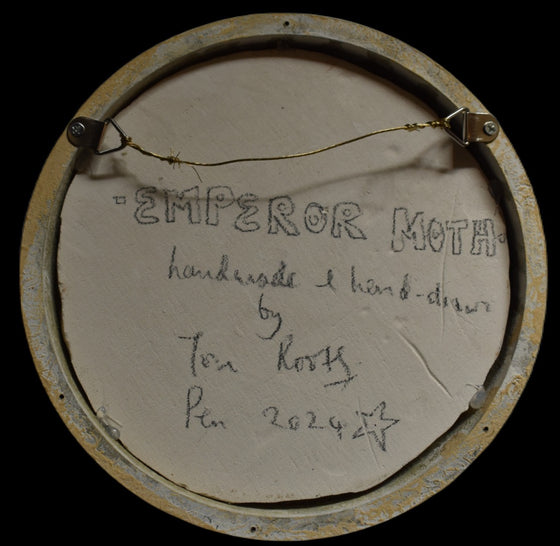 - EMPEROR MOTH -
handmade & hand-drawn
by
Tom Rooth
Pen 2024 ☆